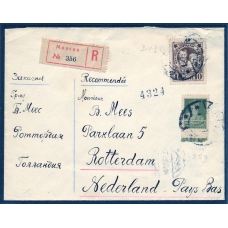 Москва
R
№ 356
40
4324
Заказное
Recommandée
Граж.
Monsieur
Б. Меес
B. Mees
Parklaan 5
Роттердам
Rotterdam
Голландия
Nederland - Pays Bas